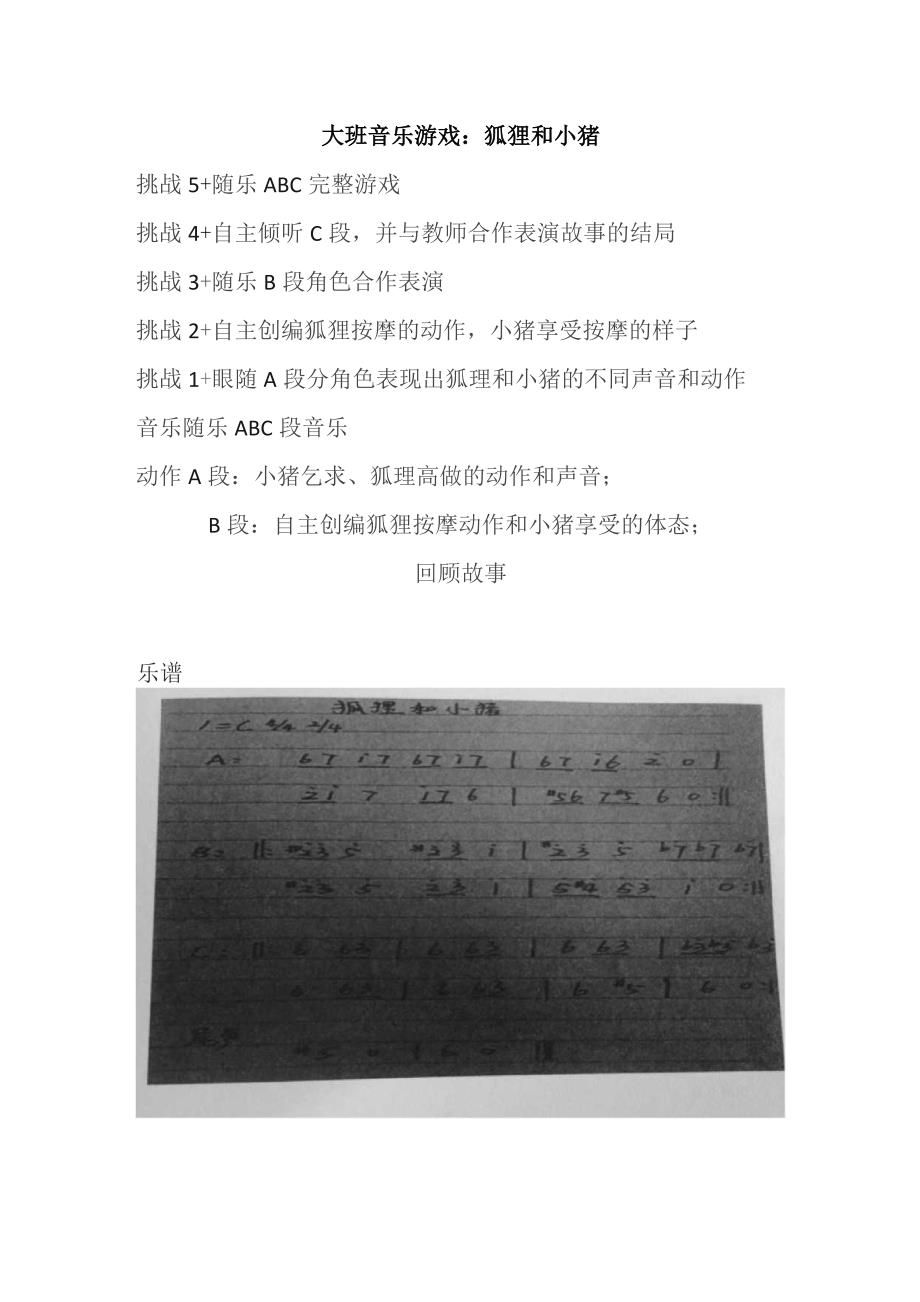 大班音乐游戏：狐狸和小猪
挑战 5+随乐 ABC 完整游戏
挑战 4+自主倾听 C 段，并与教师合作表演故事的结局
挑战 3+随乐 B 段角色合作表演
挑战 2+自主创编狐狸按摩的动作，小猪享受按摩的样子
挑战 1+眼随 A 段分角色表现出狐理和小猪的不同声音和动作
音乐随乐 ABC 段音乐
动作 A 段：小猪乞求、狐理高做的动作和声音；
B 段：自主创编狐狸按摩动作和小猪享受的体态；
回顾故事
乐谱
狐狸和小猪
1=C 2/4
A= 67 i7 67 17 | 67 i6 2 0 |
2i 7 i7 6 | #56 7#5 6 0 :||
B= ||: #23 5 #23 i | #23 5
#23 5 23 i | 5#4 53 i 0 :||
C= ||: 6 63 | 6 63 | 6 63 |
6 #5 | 6 0 :||
尾声
#5 0 | 6 0 ||